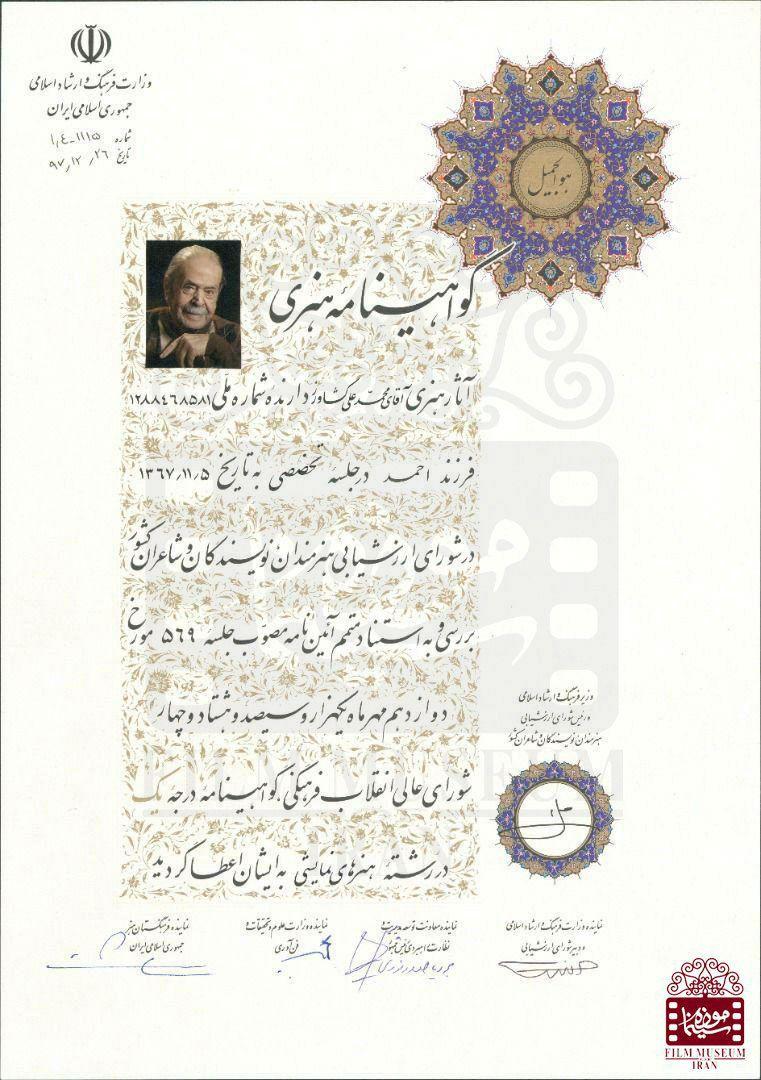 وزارت فرهنگ و ارشاد اسلامی
جمهوری اسلامی ایران
شماره ۱۰۴-۱۱۱۵
تاریخ ۹۷/۱۲/۲۶
هوالجمیل
گواهینامهٔ هنری
آثار هنری آقای محمد علی کشاورز دارنده شماره ملی ۱۲۸۸۴۶۸۵۸۱
فرزند احمد در جلسه تخصصی به تاریخ ۱۳۶۷/۱۱/۵
در شورای ارزشیابی هنرمندان نویسندگان و شاعران کشور
بررسی و به استناد متمم آئین نامه مصوب جلسه ۵۶۹ مورخ
دوازدهم مهرماه یکهزار و سیصد و هشتاد و چهار
شورای عالی انقلاب فرهنگی گواهینامه درجه یک
در رشته هنرهای نمایشی به ایشان اعطا گردید
وزیر فرهنگ و ارشاد اسلامی
و رئیس شورای ارزشیابی
هنرمندان نویسندگان و شاعران کشور
نماینده وزارت فرهنگ و ارشاد اسلامی
و دبیر شورای ارزشیابی
نماینده معاونت توسعه مدیریت و
نماینده وزارت علوم و تحقیقات و
فن آوری
نماینده فرهنگستان هنر
جمهوری اسلامی ایران
موزه سینما
FILM MUSEUM
IRAN
FILM MUSEUM
IRAN